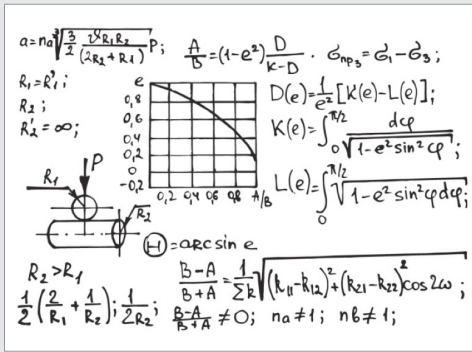 a=na∛(3/2 · ϑR₁R₂/(2R₂+R₁) P);
A/B=(1-e²) D/(K-D) · σпр₃=σ₁-σ₃;
R₁=R₁';
R₂;
R₂'=∞;
e
0,8
0,6
0,4
0,2
0
-0,2
0,2 0,4 0,6 0,8 A/B
D(e)=1/e² [K(e)-L(e)];
K(e)=∫₀^(π/2) dφ/√(1-e² sin² φ);
L(e)=∫₀^(π/2) √(1-e² sin²φdφ);
P
R₁
R₂
Ⓗ=arcsin e
R₂>R₁
(B-A)/(B+A)=1/Σk √((k₁₁-k₁₂)²+(k₂₁-k₂₂)² cos2ω;
1/2(2/R₁+1/R₂); 1/2R₂; (B-A)/(B+A)≠0; na≠1; nb≠1;